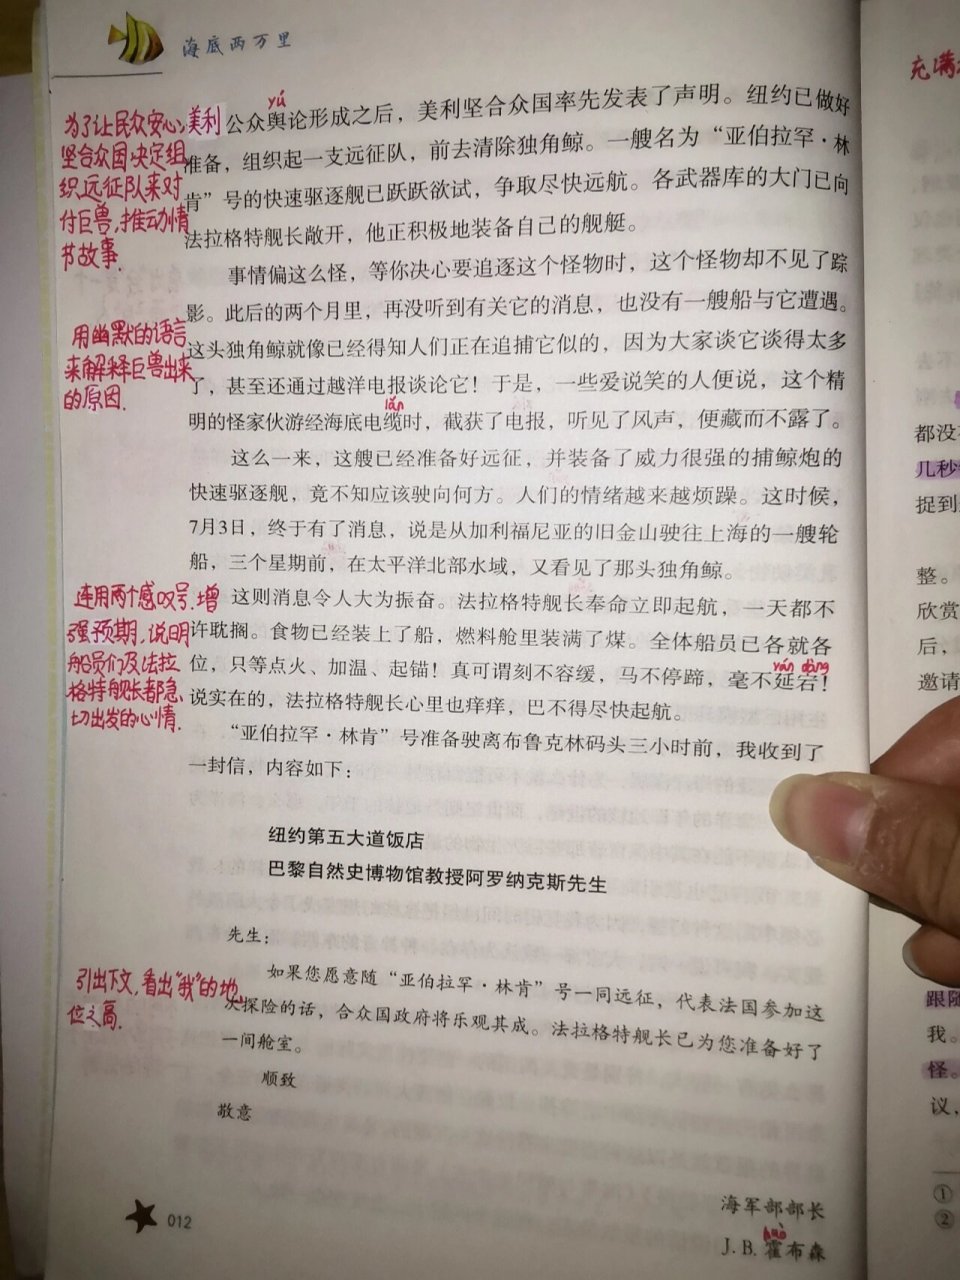 海底两万里
为了让民众安心,美利
坚合众国决定组
织远征队来对
付巨兽,推动情
节故事.
yú
公众舆论形成之后，美利坚合众国率先发表了声明。纽约已做好
准备，组织起一支远征队，前去清除独角鲸。一艘名为“亚伯拉罕·林
肯”号的快速驱逐舰已跃跃欲试，争取尽快远航。各武器库的大门已向
法拉格特舰长敞开，他正积极地装备自己的舰艇。
事情偏这么怪，等你决心要追逐这个怪物时，这个怪物却不见了踪
影。此后的两个月里，再没听到有关它的消息，也没有一艘船与它遭遇。
用幽默的语言
来解释巨兽出来
的原因.
这头独角鲸就像已经得知人们正在追捕它似的，因为大家谈它谈得太多
了，甚至还通过越洋电报谈论它！于是，一些爱说笑的人便说，这个精
lǎn
明的怪家伙游经海底电缆时，截获了电报，听见了风声，便藏而不露了。
这么一来，这艘已经准备好远征，并装备了威力很强的捕鲸炮的
快速驱逐舰，竟不知应该驶向何方。人们的情绪越来越烦躁。这时候，
7月3日，终于有了消息，说是从加利福尼亚的旧金山驶往上海的一艘轮
船，三个星期前，在太平洋北部水域，又看见了那头独角鲸。
连用两个感叹号.增
强预期,说明
船员们及法拉
格特舰长都急
切出发的心情.
这则消息令人大为振奋。法拉格特舰长奉命立即起航，一天都不
许耽搁。食物已经装上了船，燃料舱里装满了煤。全体船员已各就各
位，只等点火、加温、起锚！真可谓刻不容缓，马不停蹄，毫不延宕！
yán dàng
说实在的，法拉格特舰长心里也痒痒，巴不得尽快起航。
“亚伯拉罕·林肯”号准备驶离布鲁克林码头三小时前，我收到了
一封信，内容如下：
纽约第五大道饭店
巴黎自然史博物馆教授阿罗纳克斯先生
先生：
引出下文,看出“我”的地
位之高.
如果您愿意随“亚伯拉罕·林肯”号一同远征，代表法国参加这
次探险的话，合众国政府将乐观其成。法拉格特舰长已为您准备好了
一间舱室。
顺致
敬意
海军部部长
huò
J. B. 霍布森
012
充满
都没
几秒
捉到
整。
欣赏
后，
邀请
跟随
我。
怪。
议，
①
②